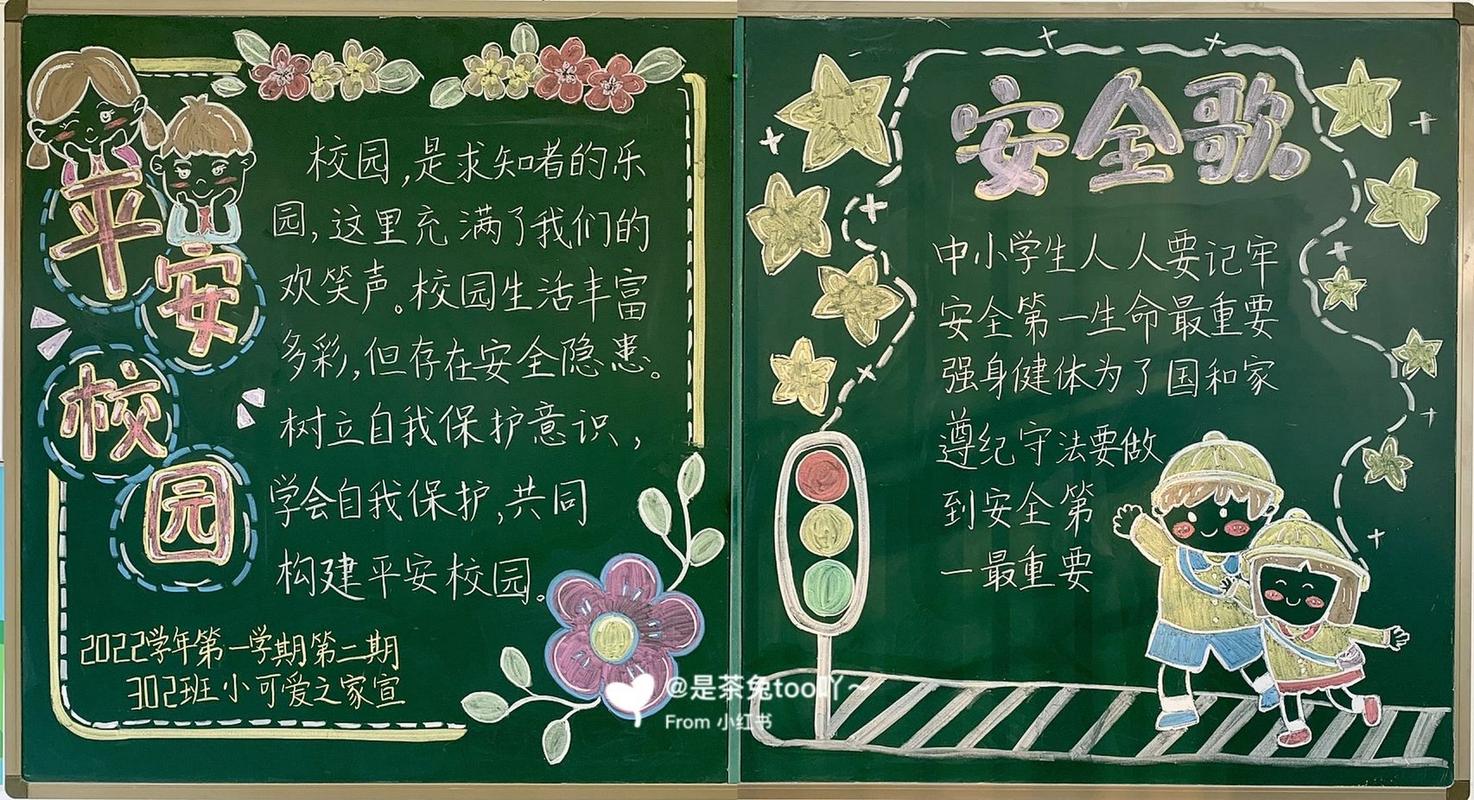 平
安
校
园
校园,是求知者的乐
园,这里充满了我们的
欢笑声。校园生活丰富
多彩,但存在安全隐患。
树立自我保护意识,
学会自我保护,共同
构建平安校园。
2022学年第一学期第二期
302班小可爱之家宣
安全歌
中小学生人人要记牢
安全第一生命最重要
强身健体为了国和家
遵纪守法要做
到安全第
一最重要
@是茶兔too吖~
From 小红书